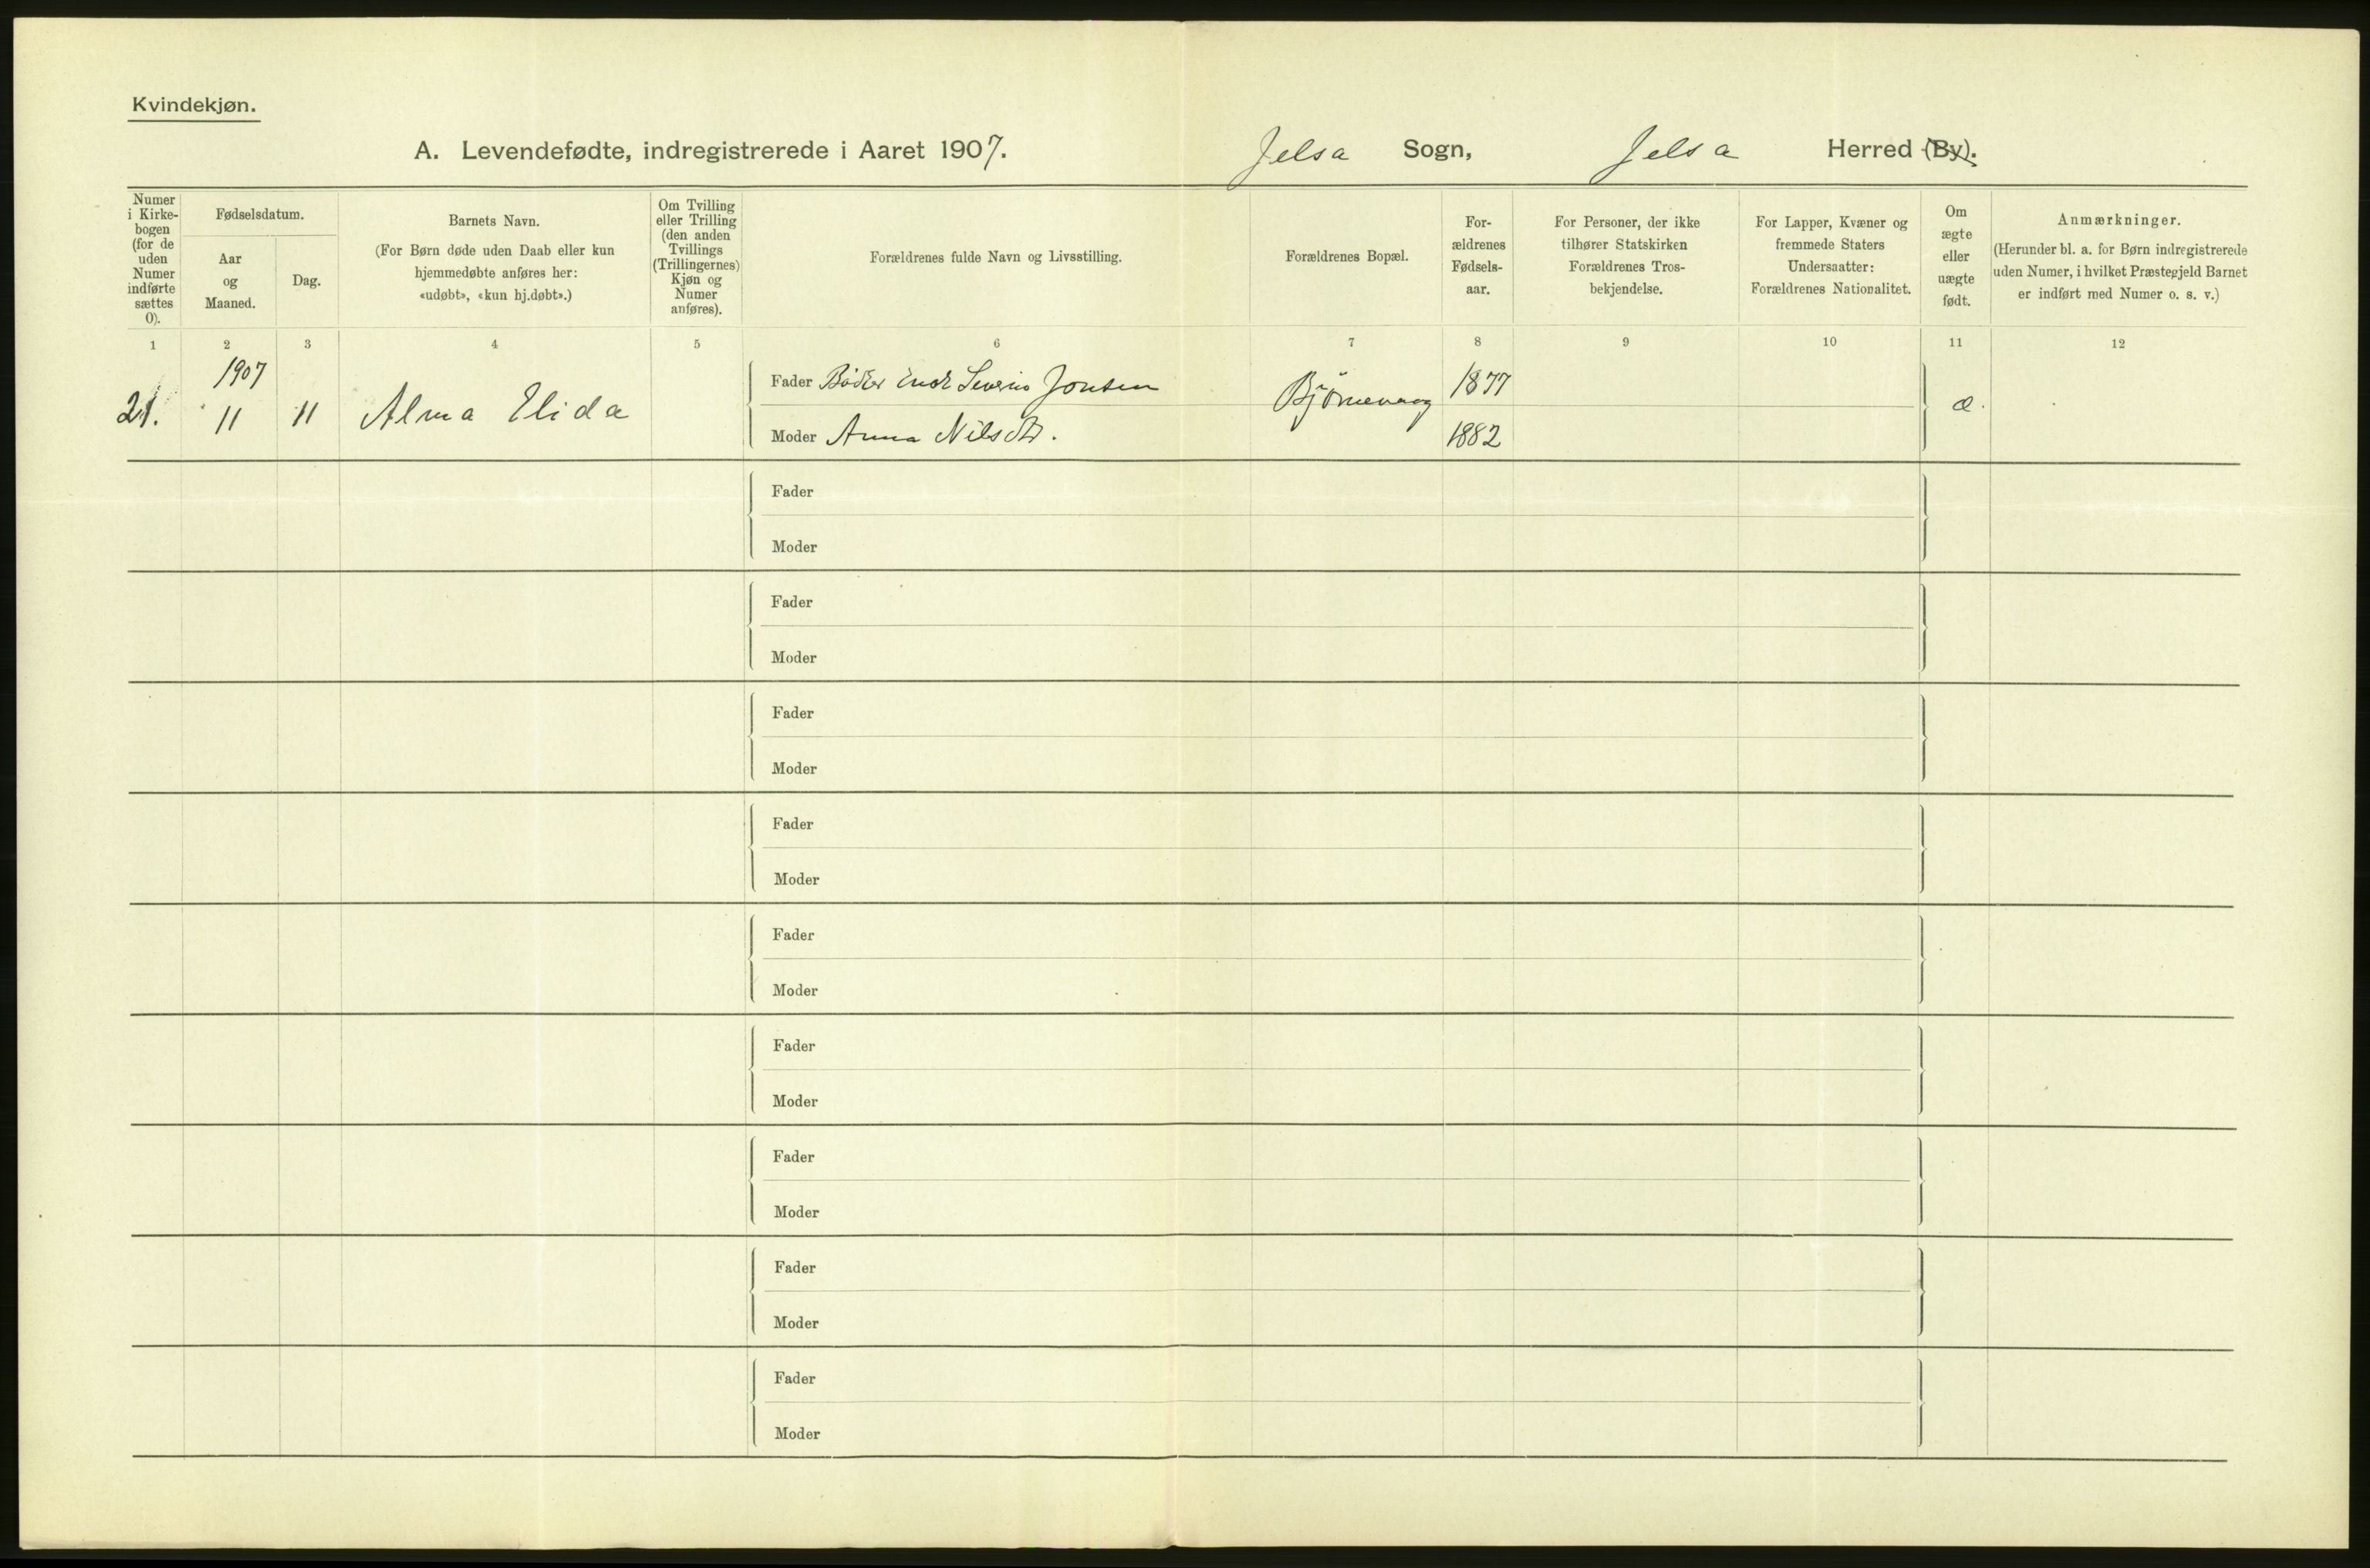 Kvindekjøn.
A. Levendefødte, indregistrerede i Aaret 1907. Jelsa Sogn, Jelsa Herred (By).
Numer
i Kirke-
bogen
(for de
uden
Numer
indførte
sættes
0).
Fødselsdatum.
Aar
og
Maaned.
Dag.
Barnets Navn.
(For Børn døde uden Daab eller kun
hjemmedøbte anføres her:
«udøbt», «kun hj.døbt».)
Om Tvilling
eller Trilling
(den anden
Tvillings
(Trillingernes)
Kjøn og
Numer
anføres).
Forældrenes fulde Navn og Livsstilling.
Forældrenes Bopæl.
For-
ældrenes
Fødsels-
aar.
For Personer, der ikke
tilhører Statskirken
Forældrenes Tros-
bekjendelse.
For Lapper, Kvæner og
fremmede Staters
Undersaatter:
Forældrenes Nationalitet.
Om
ægte
eller
uægte
født.
Anmærkninger.
(Herunder bl. a. for Børn indregistrerede
uden Numer, i hvilket Præstegjeld Barnet
er indført med Numer o. s. v.)
1 2 3 4 5 6 7 8 9 10 11 12
1907
21. 11 11 Alma Elida
Fader Bødker Endr Severin Jonsen
Bjørnevaag
1877
æ.
Moder Anna Nilsdtr.
1882
Fader
Moder
Fader
Moder
Fader
Moder
Fader
Moder
Fader
Moder
Fader
Moder
Fader
Moder
Fader
Moder
Fader
Moder